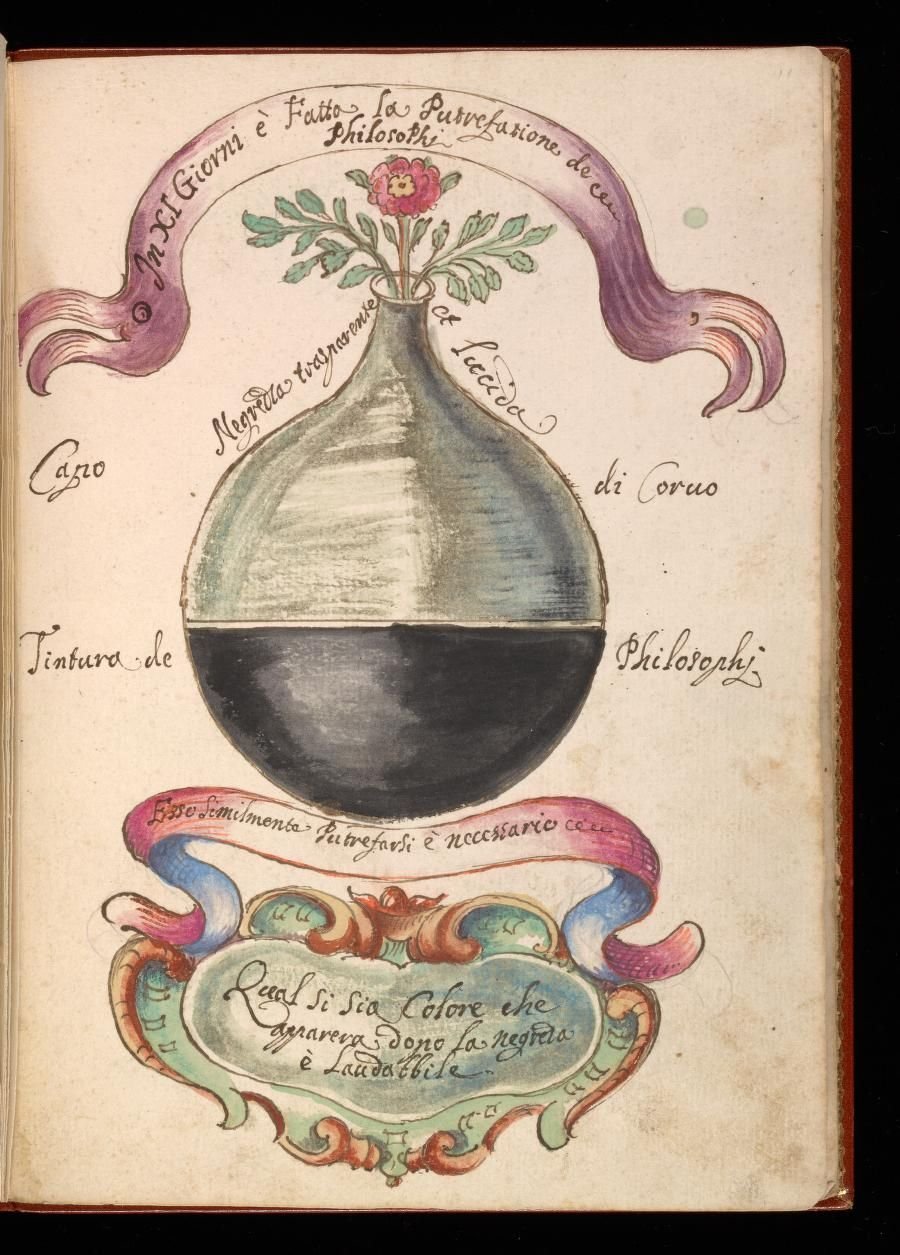 In XI Giorni è Fatta la Putrefatione de
Philosophi
Negredla trasparente
et Luccida
Capo
di Coruo
Tintura de
Philosophj
Esso Similmente Putrefarsi è necessario
Qual si sia Colore che
apparera dopo la negreda
è Laudabbile